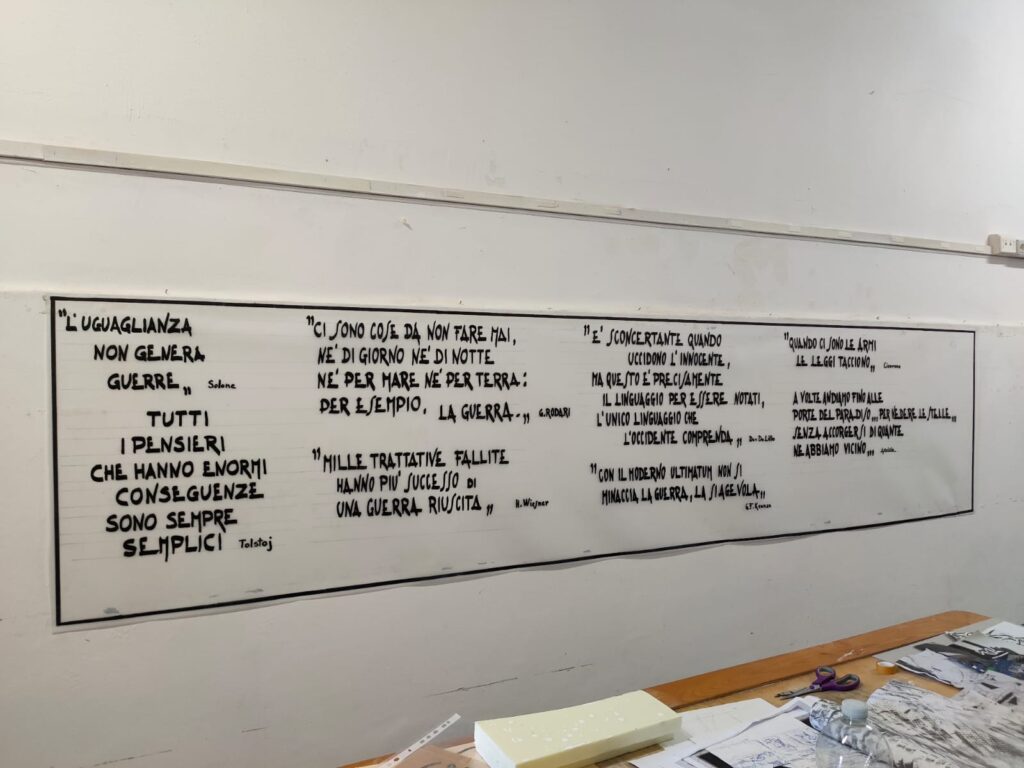 "L'UGUAGLIANZA
NON GENERA
GUERRE„ Solone
TUTTI
I PENSIERI
CHE HANNO ENORMI
CONSEGUENZE
SONO SEMPRE
SEMPLICI Tolstoj
"CI SONO COSE DA NON FARE MAI,
NE' DI GIORNO NE' DI NOTTE
NE' PER MARE NE' PER TERRA:
PER ESEMPIO, LA GUERRA.„ G.RODARI
"MILLE TRATTATIVE FALLITE
HANNO PIU' SUCCESSO DI
UNA GUERRA RIUSCITA„ H. Wiesner
"E' SCONCERTANTE QUANDO
UCCIDONO L'INNOCENTE,
MA QUESTO E' PRECISAMENTE
IL LINGUAGGIO PER ESSERE NOTATI,
L'UNICO LINGUAGGIO CHE
L'OCCIDENTE COMPRENDA„ Don De Lillo
"CON IL MODERNO ULTIMATUM NON SI
MINACCIA LA GUERRA, LA SI AGEVOLA„
"QUANDO CI SONO LE ARMI
LE LEGGI TACCIONO„ Cicerone
A VOLTE ANDIAMO FINO ALLE
PORTE DEL PARADISO... PER VEDERE LE STELLE„
SENZA ACCORGERSI DI QUANTE
NE ABBIAMO VICINO„